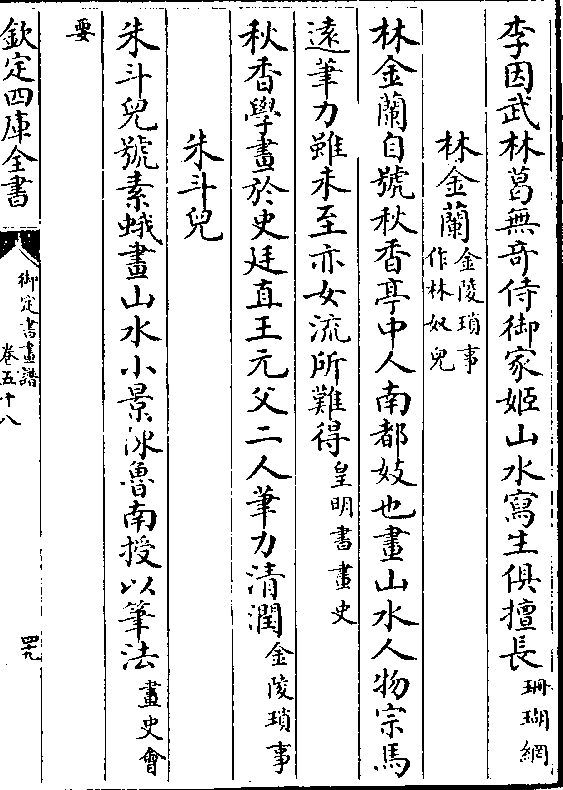 李因武林葛無奇侍御家姬山水寫生俱擅長珊瑚網
林金蘭金陵瑣事作林奴兒
林金蘭自號秋香亭中人南都妓也畫山水人物宗馬
遠筆力雖未至亦女流所難得皇明書畫史
秋香學畫於史廷直王元父二人筆力清潤金陵瑣事
朱斗兒
朱斗兒號素蛾畫山水小景陳魯南授以筆法畫史會
要
欽定四庫全書
御定書畫譜
卷五十八
四九